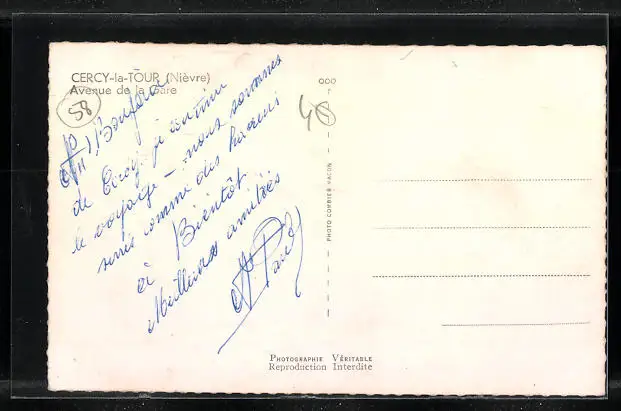 CERCY-la-TOUR (Nièvre)
Avenue de la Gare
58
Bonjour
de Cercy. je continue
le voyage - nous sommes
serrés comme des harengs
à Bientôt
Meilleures amitiés
PHOTO COMBIER MACON
PHOTOGRAPHIE VÉRITABLE
Reproduction Interdite